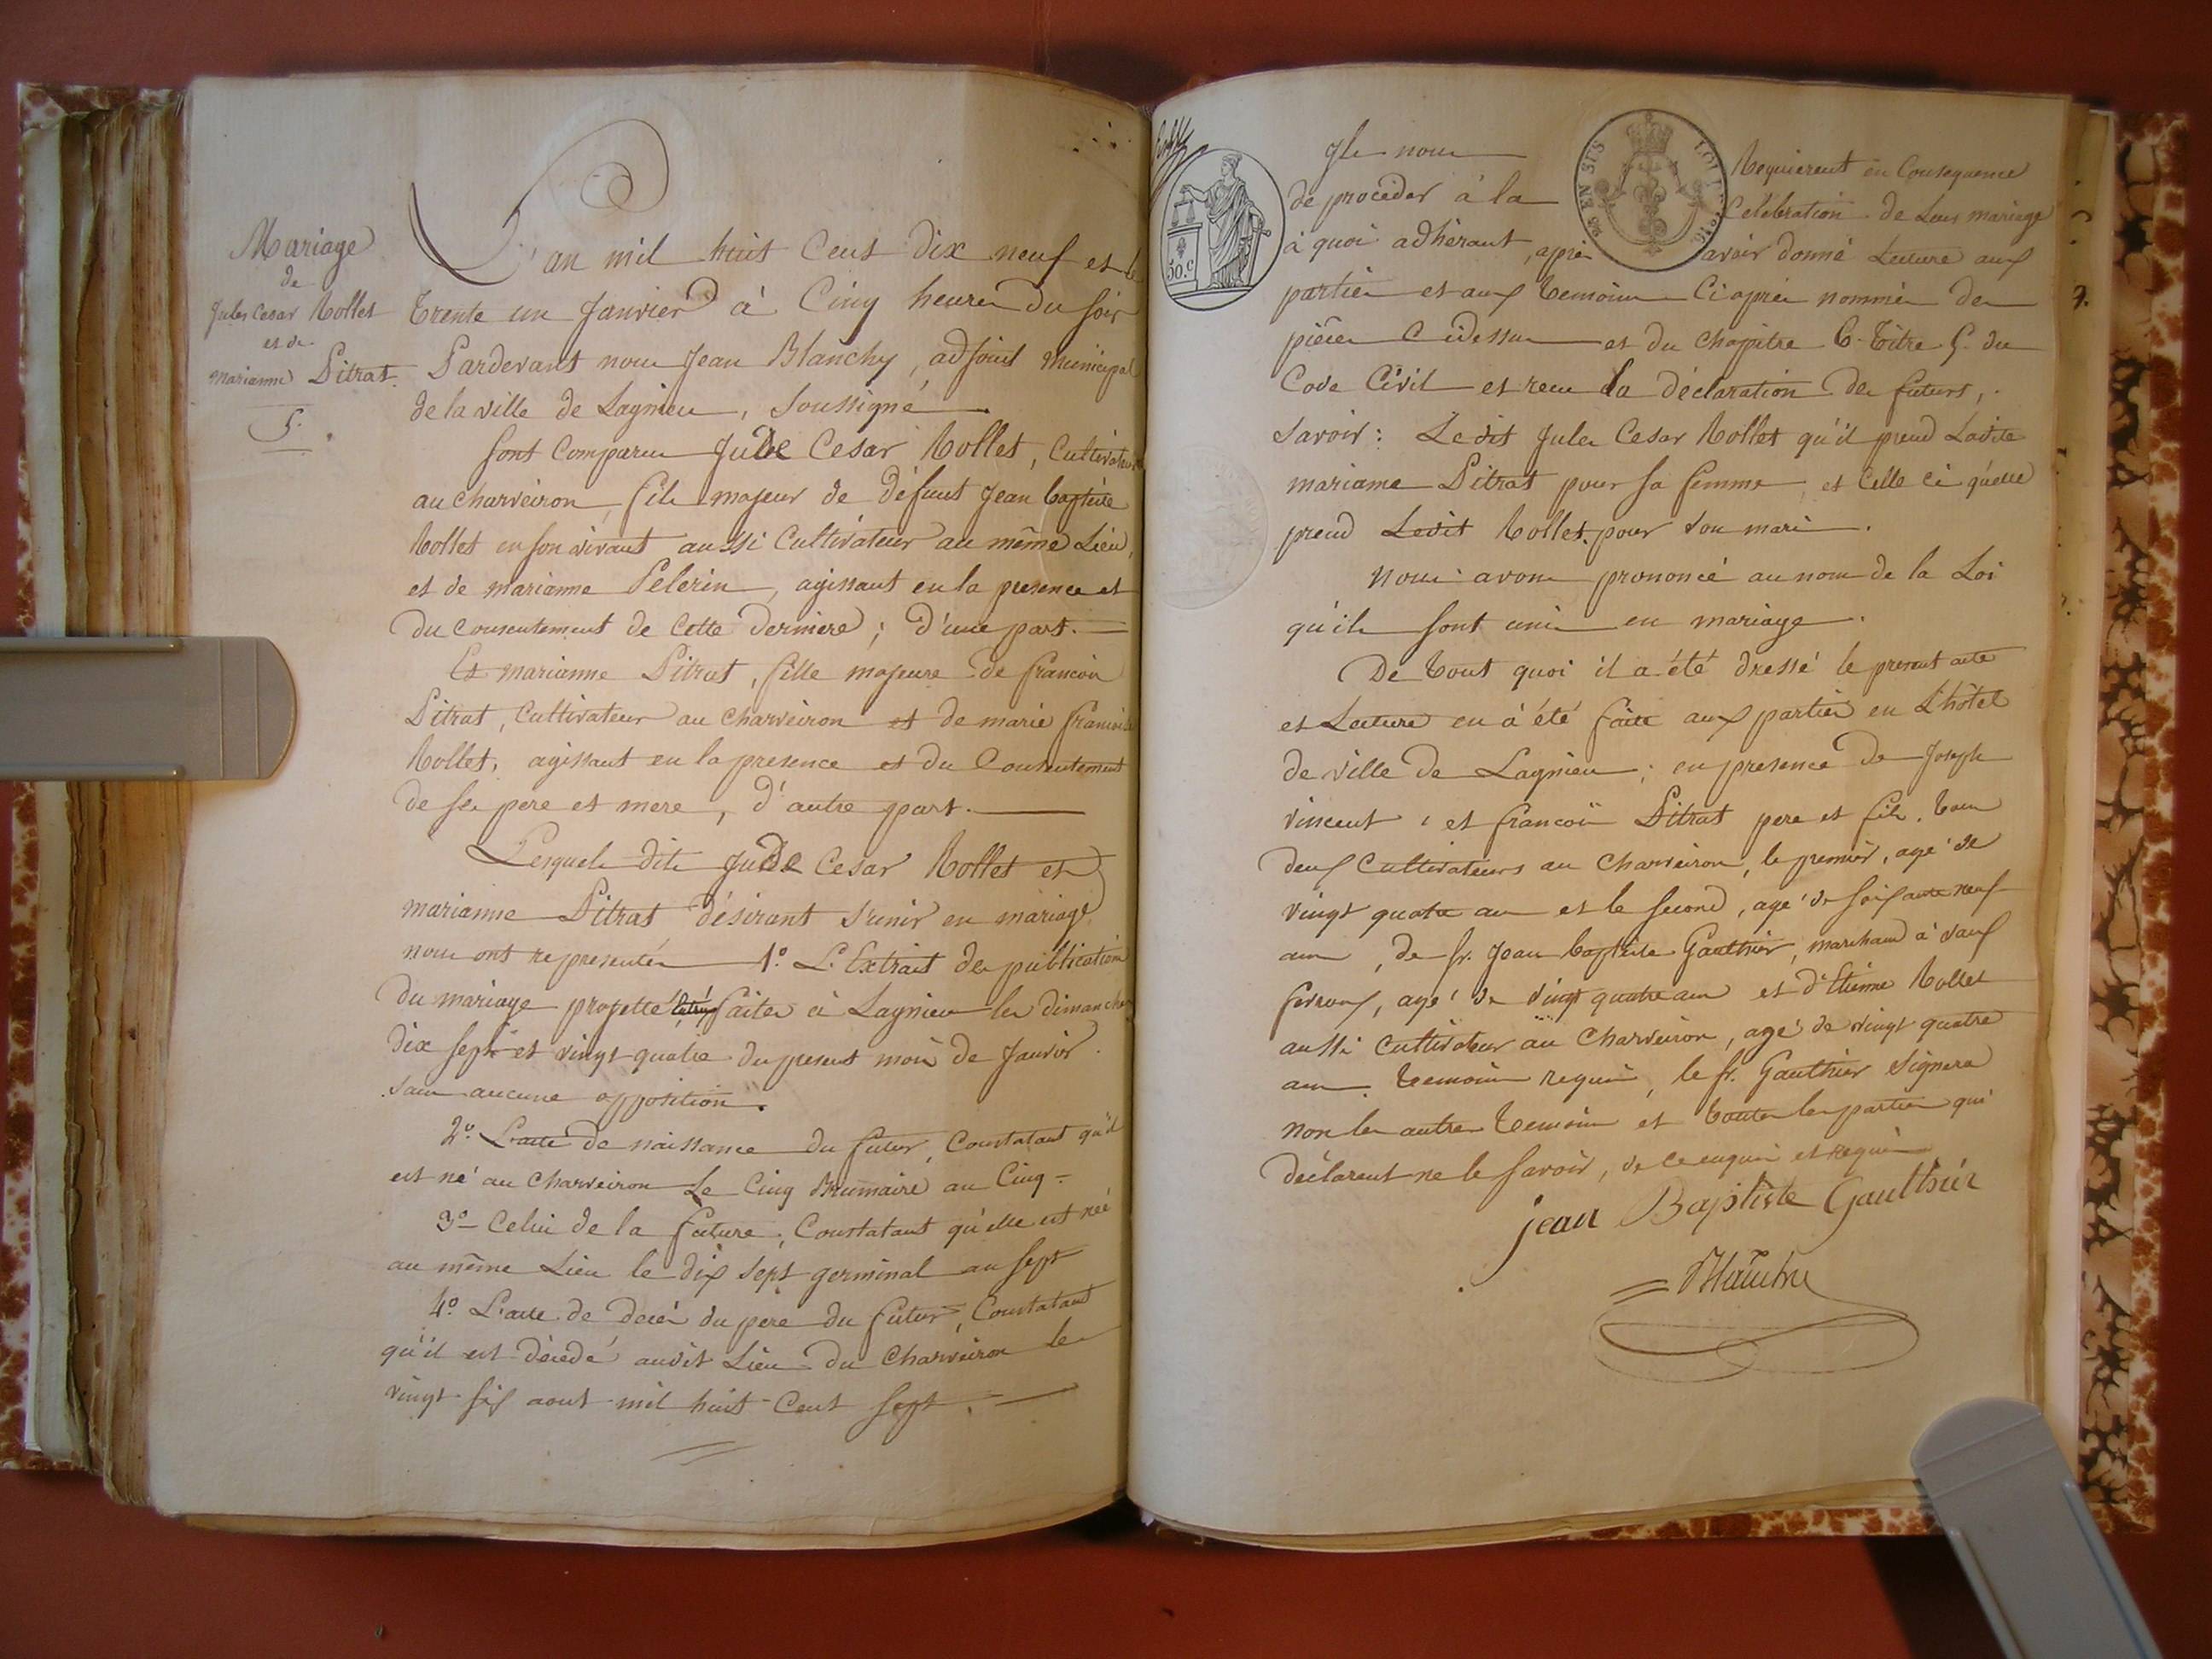 Mariage
de
Jules Cesar Rollet
et de
marianne Pitrat.
5.
L'an mil huit Cent dix neuf et le
trente un Janvier à Cinq heures du soir
Pardevant nous Jean Blanchy, adjoint municipal
de la ville de Lagnieu, soussigné
sont comparus Jude Cesar Rollet, Cultivateur
au Charveiron fils majeur de défunt Jean baptiste
Rollet en son vivant aussi Cultivateur au même Lieu,
et de marianne Pelerin, agissant en la presence et
du consentement de Cette derniere; d'une part.
Et marianne Pitrat, fille majeure de francois
Pitrat, Cultivateur au Charveiron et de marie francoise
Rollet, agissant en la presence et du Consentement
de ses pere et mere, d'autre part.
Lesquels dits Jude Cesar Rollet et
marianne Pitrat désirant s'unir en mariage
nous ont representés 1.º L'Extrait des publications
du mariage projetté faites à Lagnieu les dimanches
dix sept et vingt quatre du present mois de Janvier
sans aucune opposition.
2.º L'acte de naissance du futur, Constatant qu'il
est né au Charveiron Le Cinq Brumaire an Cinq =
3º Celui de la future, Constatant qu'elle est née
au même Lieu le dix sept germinal an sept
4.º L'acte de decés du pere du futur, Constatant
qu'il est décedé audit Lieu du Charveiron le
vingt-six aout mil huit-Cent sept.
50.c
EN SUS
Ils nous Requierent en Consequence
de proceder à la Celebration de Leur mariage
à quoi adhérant, après avoir donné Lecture aux
parties et aux temoins Ci après nommés des
pièces Cidessus et du chapitre 6. Titre 5. du
Code Civil et recu La déclaration des futurs,
savoir: Ledit Jules Cesar Rollet qu'il prend Ladite
marianne Pitrat pour sa femme, et Celle ci qu'elle
prend Ledit Rollet pour son mari.
Nous avons prononcé au nom de la Loi
qu'ils sont unis en mariage.
De tout quoi il a été dressé le present acte
et Lecture en à été faite aux parties en L'hôtel
de ville de Lagnieu; en presence de Joseph
vincent, et francois Pitrat pere et fils. tous
deux Cultivateurs au Charveiron, le premier, agé de
vingt quatre ans et le second, agé de soixante neuf
ans, de sr. Jean baptiste Gauthier, marchand à vaux
ferroux, agé de vingt quatre ans et d'Etienne Rollet
aussi Cultivateur au Charveiron, agé de vingt quatre
ans temoins requis, le sr. Gauthier signera
non les autres temoins et toutes les parties qui
déclarent ne le savoir, de ce enquis et requis
jean Baptiste Gaulthier